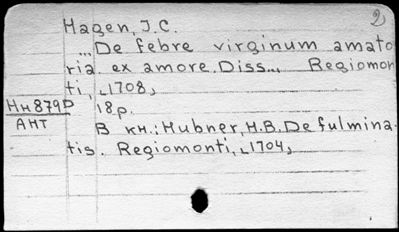 2
Hagen, J.C.
...De febre virginum amato
ria ex amore. Diss... Regiomon
ti, ⌞1708⌟
Нн879р 18p.
АНТ
В кн.: Hubner, H.B. De fulmina-
tis. Regiomonti, ⌞1704⌟